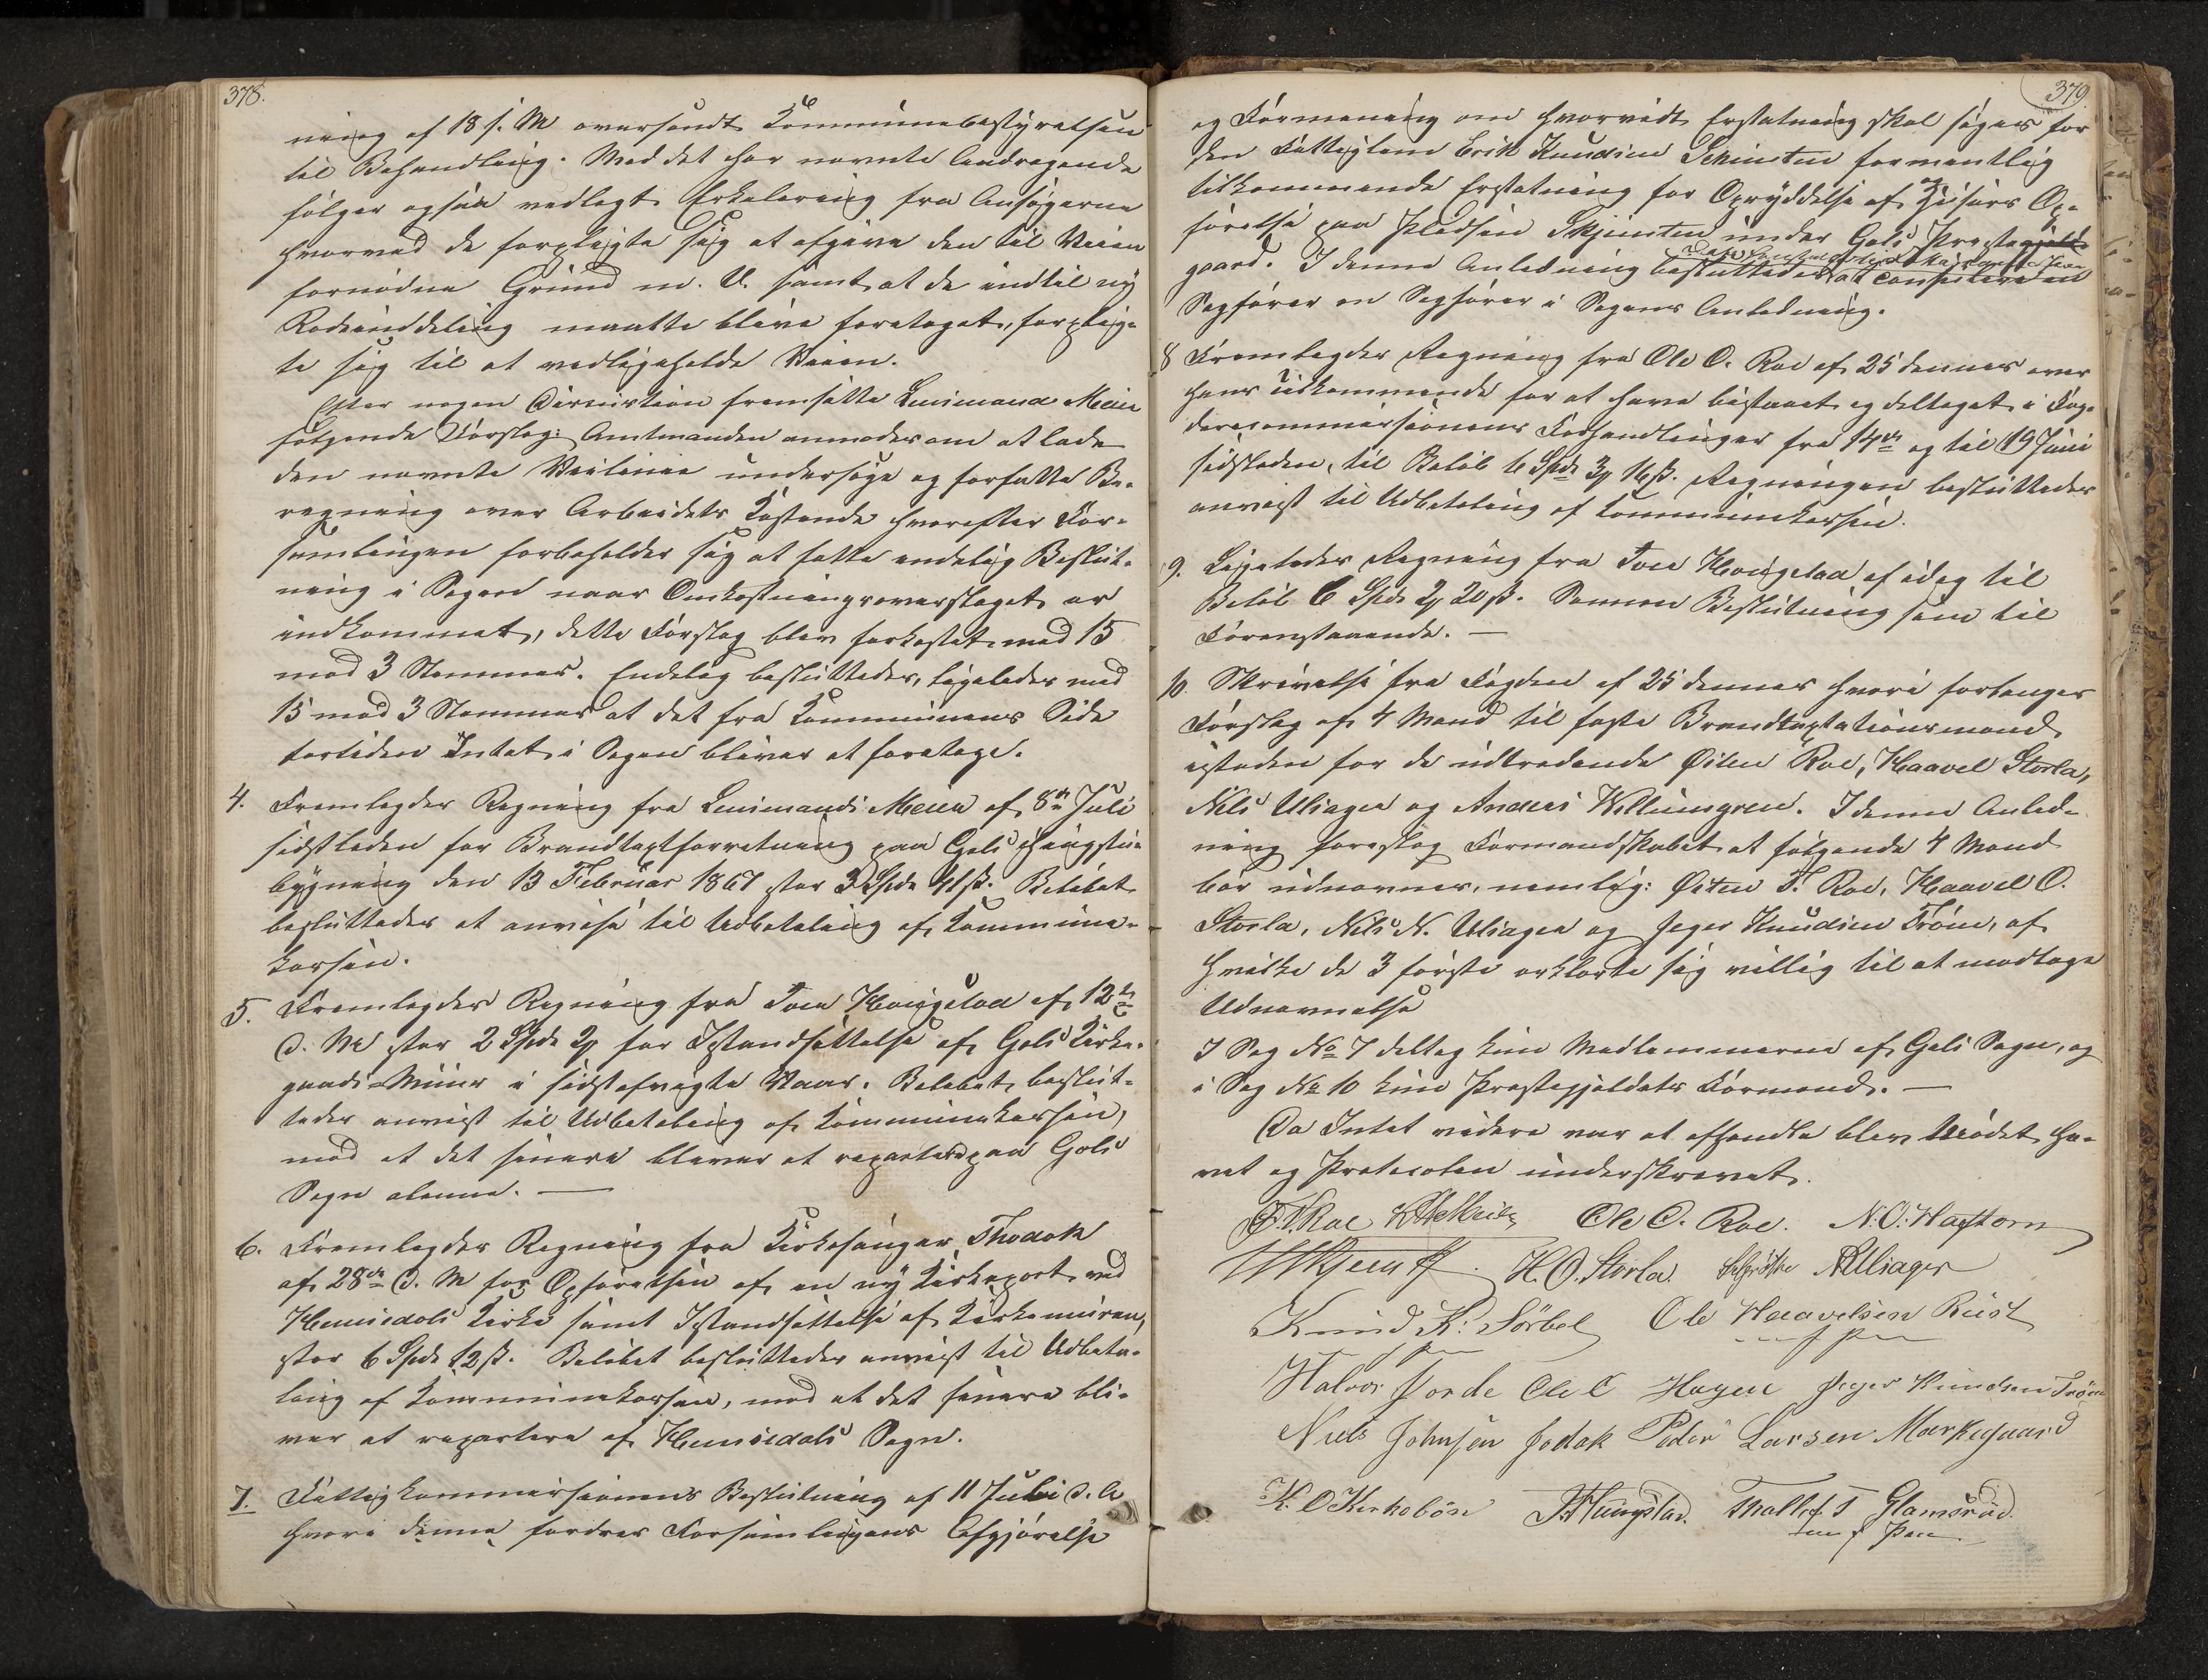 378.
ning af 18 f. M oversendt Kommunebestyrelsen
til Behandling. Med det her nevnte Andragende
følger ogsaa vedlagt Erkelæring fra Ansøgerne
hvorved de forpligte sig at afgive den til Veien
fornødne Grund m. V. samt at de indtil ny
Rodeinddeling maatte blive foretaget, forplig-
te sig til at vedligeholde Veien.
Efter nogen Discustion fremsatte Lensmand Meier
følgende Forslag: Amtmanden anmodes om at lade
den nevnte Veilinie undersøge og forfatte Be-
regning over Arbeidets Kostende hvorefter For-
samlingen forbeholder sig at fatte endelig Beslut-
ning i Sagen naar Omkostningsoverslaget er
indkommet, dette Forslag blev forkastet med 15
mod 3 Stemmer. Endelig besluttedes, ligeledes med
15 mod 3 Stemmer at det fra Kommunens Side
fortiden Intet i Sagen bliver at foretage.
4. Fremlagdes Regning fra Lensmand Meier af 8de Juli
sidstleden for Brandtaxtforretning paa Gols Thingstu-
bygning den 13 Februar 1867 stor 3 Spd. 41 ß. Beløbet
besluttedes at anvise til Udbetaling af Kommune-
kassen.
5. Fremlagdes Regning fra Tove Houglad af 12te
d. M stor 2 Spd. 2 for Istandsættelse af Gols Kirke-
gaards Muur i sidstafvigte Vaar. Beløbet beslut-
tedes anvist til Udbetaling af Kommunekassen,
mod at det senere bliver at repartere paa Gols
Sogn alenne. —
6. Fremlagdes Regning fra Kirkesanger Thodok
af 28de d. M for Opførelsen af en ny Kirkeport ved
Hemsedals Kirke samt Istandsættelse af Kirkemuren,
stor 6 Spd. 12 ß. Beløbet besluttedes anvist til Udbeta-
ling af Kommunekassen, mod at det senere bli-
ver at repartere af Hemsedals Sogn.
7. Fattigkommissionens Beslutning af 11 Juli d. A
hvori denne fordrer Forsamlingens Afgjørelse
379.
og Formening om hvorvidt Erstatning skal søges for
den Fattiglem Erik Knudsen Skinsten formentlig
tilkommende Erstatning for Oprøddelse af og Huses Op-
førelse paa Pladsen Skjinsten under Gols Prestegjeld-
gaard. I denne Anledning besluttedes at consulere en
Sagfører en Sagfører i Sagens Anledning.
8 Fremlagdes Regning fra Ole O. Roe af 25 dennes over
hans Tilkommende for at have bistaaet og deltaget i Fog-
derecommissionens Forhandlinger fra 14de og til 19 Juni
sidstleden, til Beløb 6 Spd. 3 16 ß. Regningen besluttedes
anvist til Udbetaling af Kommunekassen.
9. Ligeledes Regning fra Tove Houglad af idag til
Beløb 6 Spd. 2 20 ß. Samme Beslutning som til
Foranstaaende. —
10. Skrivelse fra Fogden af 25 dennes hvori forlanges
Forslag af 4 Mænd til faste Brandtaxtationsmænd
istaden for de udtredende Østen Roe, Haavel Storla,
Nils Uliager og Anders Villumgren. I denne Anled-
ning foreslog Formandskabet at følgende 4 Mænd
bør udnævnes, nemlig: Østen T. Roe, Haavel O.
Storla, Nils N. Uliager og Jeger Knudsen Trøim, af
hvilke de 3 første erklærte sig villig til at modtage
Udnævnelse
I Sag No 7 deltog kun Medlemmerne af Gols Sogn, og
i Sag No 10 kun Prestegjeldets Formænd. —
Da Intet videre var at afhandle blev Mødet he-
vet og Protocolen underskrevet.
T. Roe Ole O. Roe. N. O. Haftorn
H. O. Storla. N Uliager
Knud K. Sørbel Ole Haavelsen Rust
Halvor Jorde Ole O Hagen Jeger Knudsen Trøim
Niels Johnsen Jodok Peder Larsen Markegaard
K. O Kirkebøn Thollef T Glamsrud.